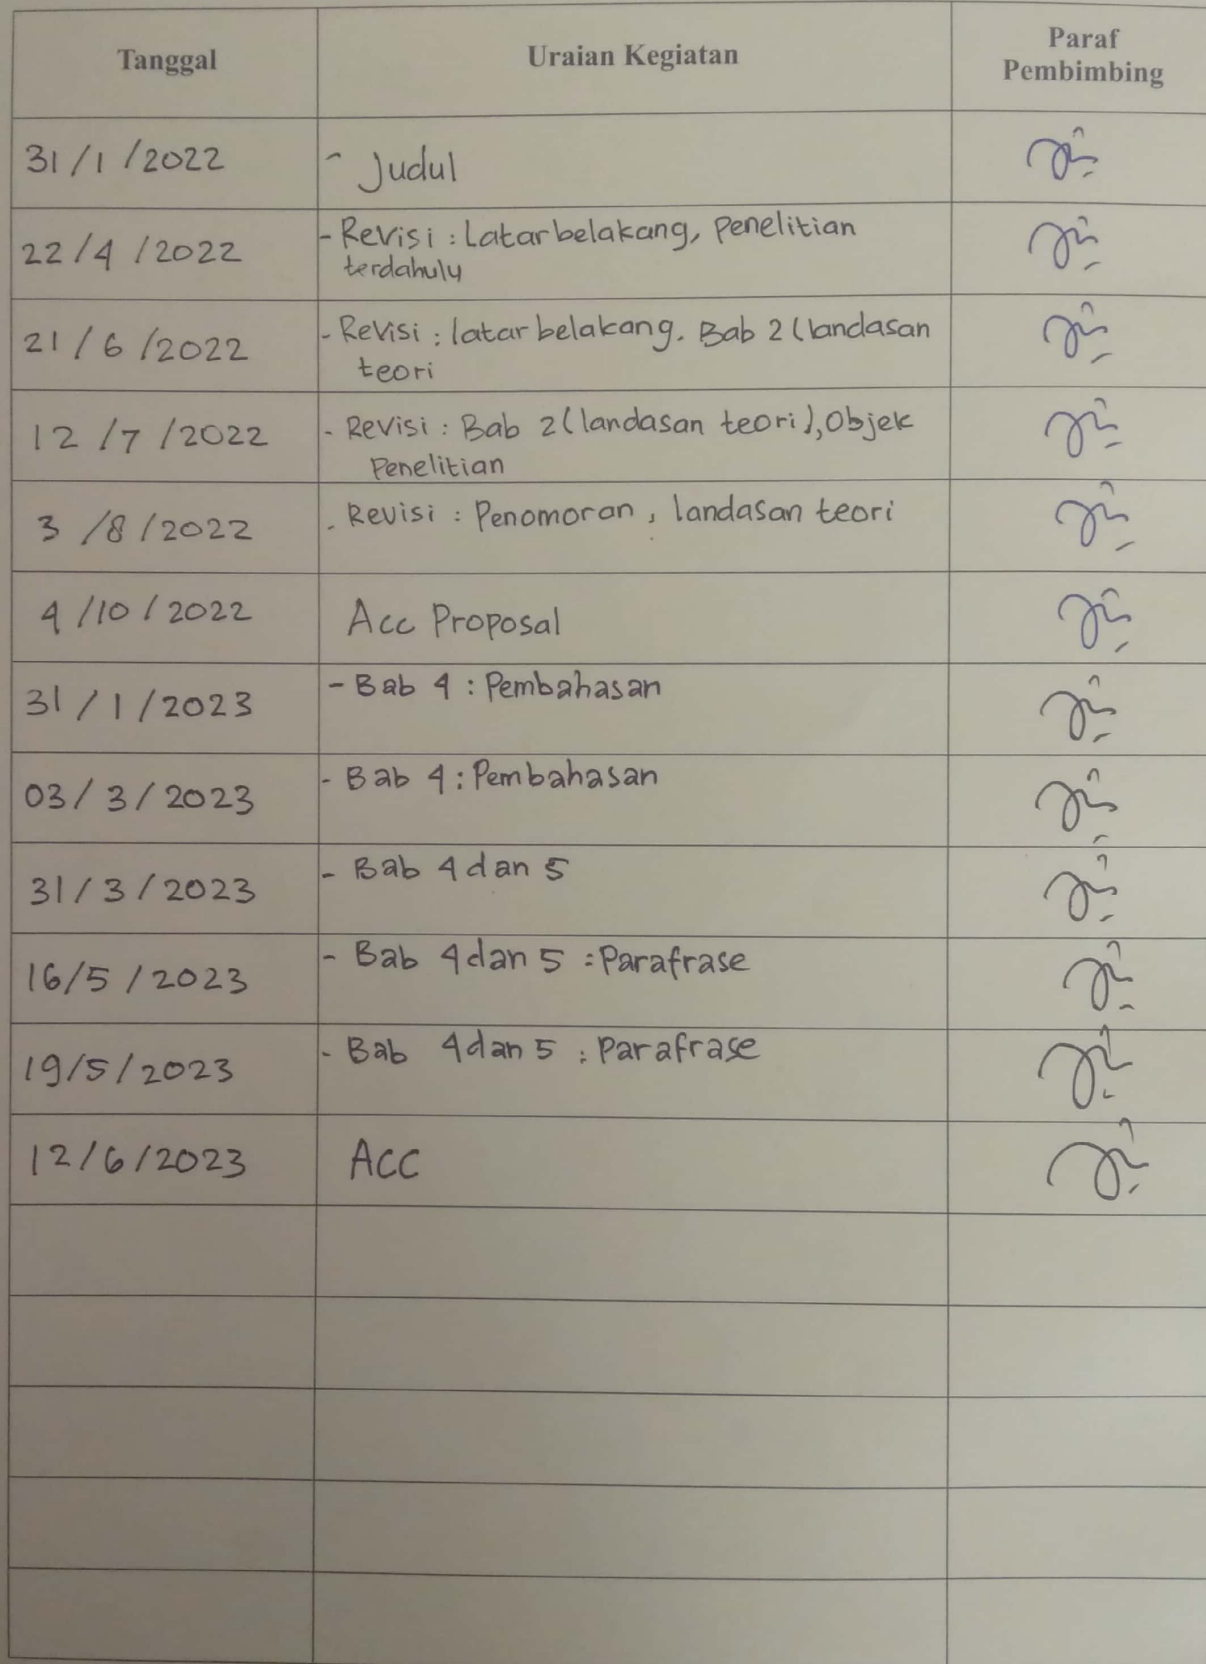 Tanggal
Uraian Kegiatan
Paraf
Pembimbing
31/1/2022
- Judul
22/4/2022
- Revisi : Latar belakang, Penelitian
terdahulu
21/6/2022
- Revisi : latar belakang. Bab 2 (landasan
teori
12/7/2022
- Revisi : Bab 2 (landasan teori), Objek
Penelitian
3/8/2022
. Revisi : Penomoran, landasan teori
4/10/2022
Acc Proposal
31/1/2023
- Bab 4 : Pembahasan
03/3/2023
- Bab 4 : Pembahasan
31/3/2023
- Bab 4 dan 5
16/5/2023
- Bab 4 dan 5 : Parafrase
19/5/2023
- Bab 4 dan 5 : Parafrase
12/6/2023
ACC